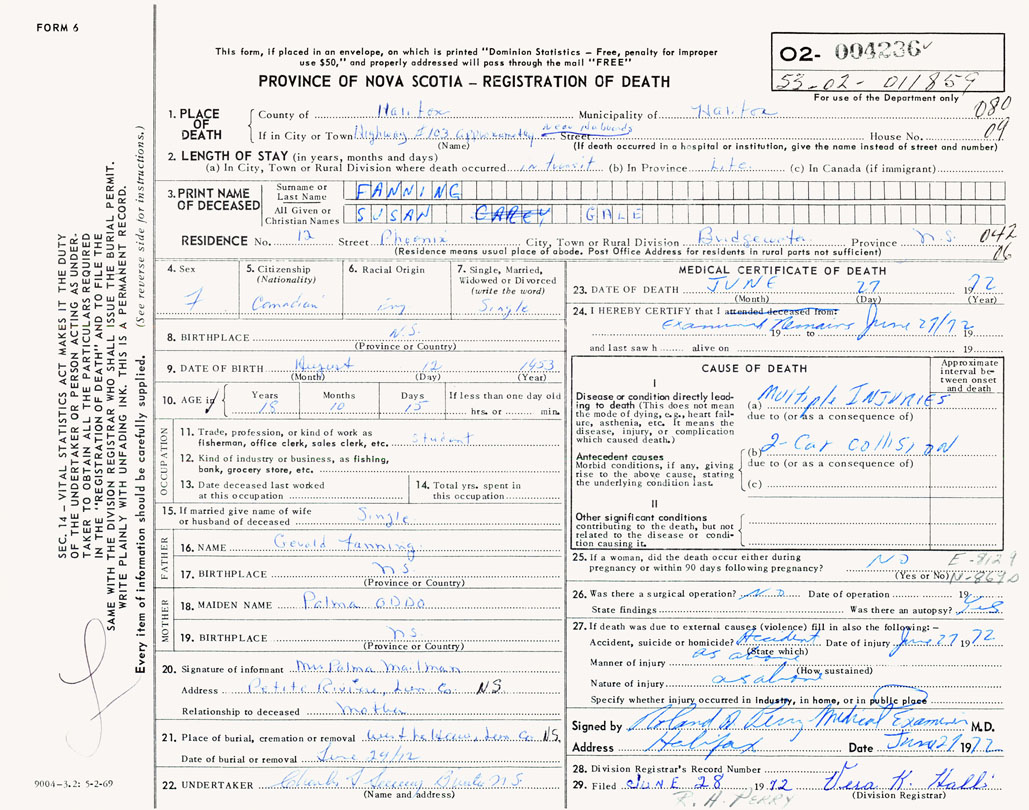 FORM 6
This form, if placed in an envelope, on which is printed "Dominion Statistics – Free, penalty for improper
use $50," and properly addressed will pass through the mail "FREE"
PROVINCE OF NOVA SCOTIA – REGISTRATION OF DEATH
O2- 004236
53-02-011859
For use of the Department only
080
09
1. PLACE OF DEATH
County of Halifax Municipality of Halifax
If in City or Town Highway #103 near Hubbards Street House No.
(Name) (If death occurred in a hospital or institution, give the name instead of street and number)
2. LENGTH OF STAY (in years, months and days)
(a) In City, Town or Rural Division where death occurred in transit (b) In Province Life (c) In Canada (if immigrant)
3. PRINT NAME OF DECEASED
Surname or Last Name FANNING
All Given or Christian Names SUSAN CAREY GALE
RESIDENCE No. 12 Street Phoenix City, Town or Rural Division Bridgewater Province N.S.
042
06
(Residence means usual place of abode. Post Office Address for residents in rural parts not sufficient)
4. Sex
F
5. Citizenship (Nationality)
Canadian
6. Racial Origin
7. Single, Married, Widowed or Divorced (write the word)
Single
8. BIRTHPLACE N.S.
(Province or Country)
9. DATE OF BIRTH August 12 1953
(Month) (Day) (Year)
10. AGE in
Years 18 Months 10 Days 15 If less than one day old
hrs. or min.
OCCUPATION
11. Trade, profession, or kind of work as
fisherman, office clerk, sales clerk, etc. Student
12. Kind of industry or business, as fishing,
bank, grocery store, etc.
13. Date deceased last worked
at this occupation
14. Total yrs. spent in
this occupation
15. If married give name of wife
or husband of deceased Single
FATHER
16. NAME Gerald Fanning
17. BIRTHPLACE N S
(Province or Country)
MOTHER
18. MAIDEN NAME Palma ODDO
19. BIRTHPLACE N S
(Province or Country)
20. Signature of informant Mrs Palma Mailman
Address Petite Riviere, Lun Co. N.S.
Relationship to deceased Mother
21. Place of burial, cremation or removal Lun Co. N.S.
Date of burial or removal June
22. UNDERTAKER N.S.
(Name and address)
MEDICAL CERTIFICATE OF DEATH
23. DATE OF DEATH JUNE 27 1972
(Month) (Day) (Year)
24. I HEREBY CERTIFY that I attended deceased from:
Examined Remains June 27/72
19 to 19
and last saw h alive on 19
CAUSE OF DEATH
Approximate interval between onset and death
I
Disease or condition directly leading to death (This does not mean the mode of dying, e.g., heart failure, asthenia, etc. It means the disease, injury, or complication which caused death.)
(a) MULTIPLE INJURIES
due to (or as a consequence of)
Antecedent causes
Morbid conditions, if any, giving rise to the above cause, stating the underlying condition last.
(b) 2-Car COLLISION
due to (or as a consequence of)
(c)
II
Other significant conditions
contributing to the death, but not related to the disease or condition causing it.
25. If a woman, did the death occur either during
pregnancy or within 90 days following pregnancy? NO
(Yes or No)
26. Was there a surgical operation? NO Date of operation 19
State findings Was there an autopsy? Yes
27. If death was due to external causes (violence) fill in also the following: –
Accident, suicide or homicide? Accident Date of injury June 27 1972
(State which)
Manner of injury as above
(How, sustained)
Nature of injury as above
Specify whether injury occurred in Industry, in home, or in public place
Signed by Roland H Perry Medical Examiner M.D.
Address Halifax Date June 27 1972
28. Division Registrar's Record Number
29. Filed JUNE 28 1972 Vera K.
(Division Registrar)
R. H. PERRY
SEC. 14 – VITAL STATISTICS ACT MAKES IT THE DUTY
OF THE UNDERTAKER OR PERSON ACTING AS UNDER-
TAKER TO OBTAIN ALL THE PARTICULARS REQUIRED
IN THE "REGISTRATION OF DEATH" AND TO FILE THE
SAME WITH THE DIVISION REGISTRAR WHO SHALL ISSUE THE BURIAL PERMIT.
WRITE PLAINLY WITH UNFADING INK. THIS IS A PERMANENT RECORD.
Every item of information should be carefully supplied. (See reverse side for instructions.)
9004-3.2: 5-2-69